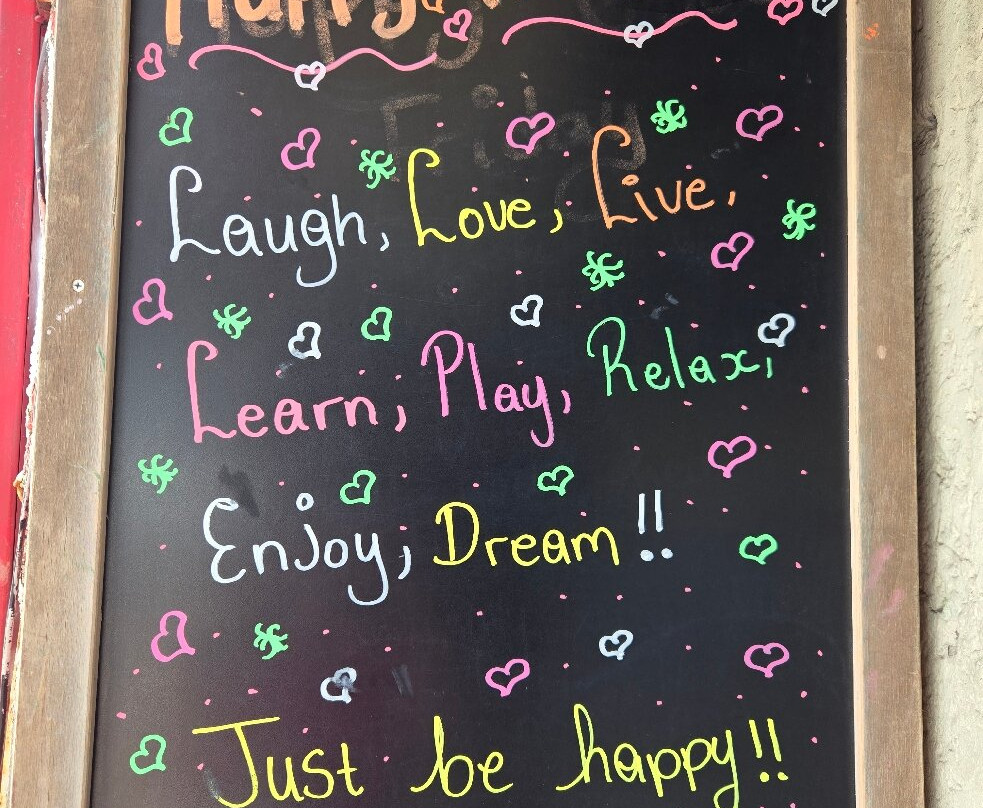 Happy
Laugh, Love, Live,
Learn, Play, Relax,
Enjoy, Dream !!
Just be happy!!